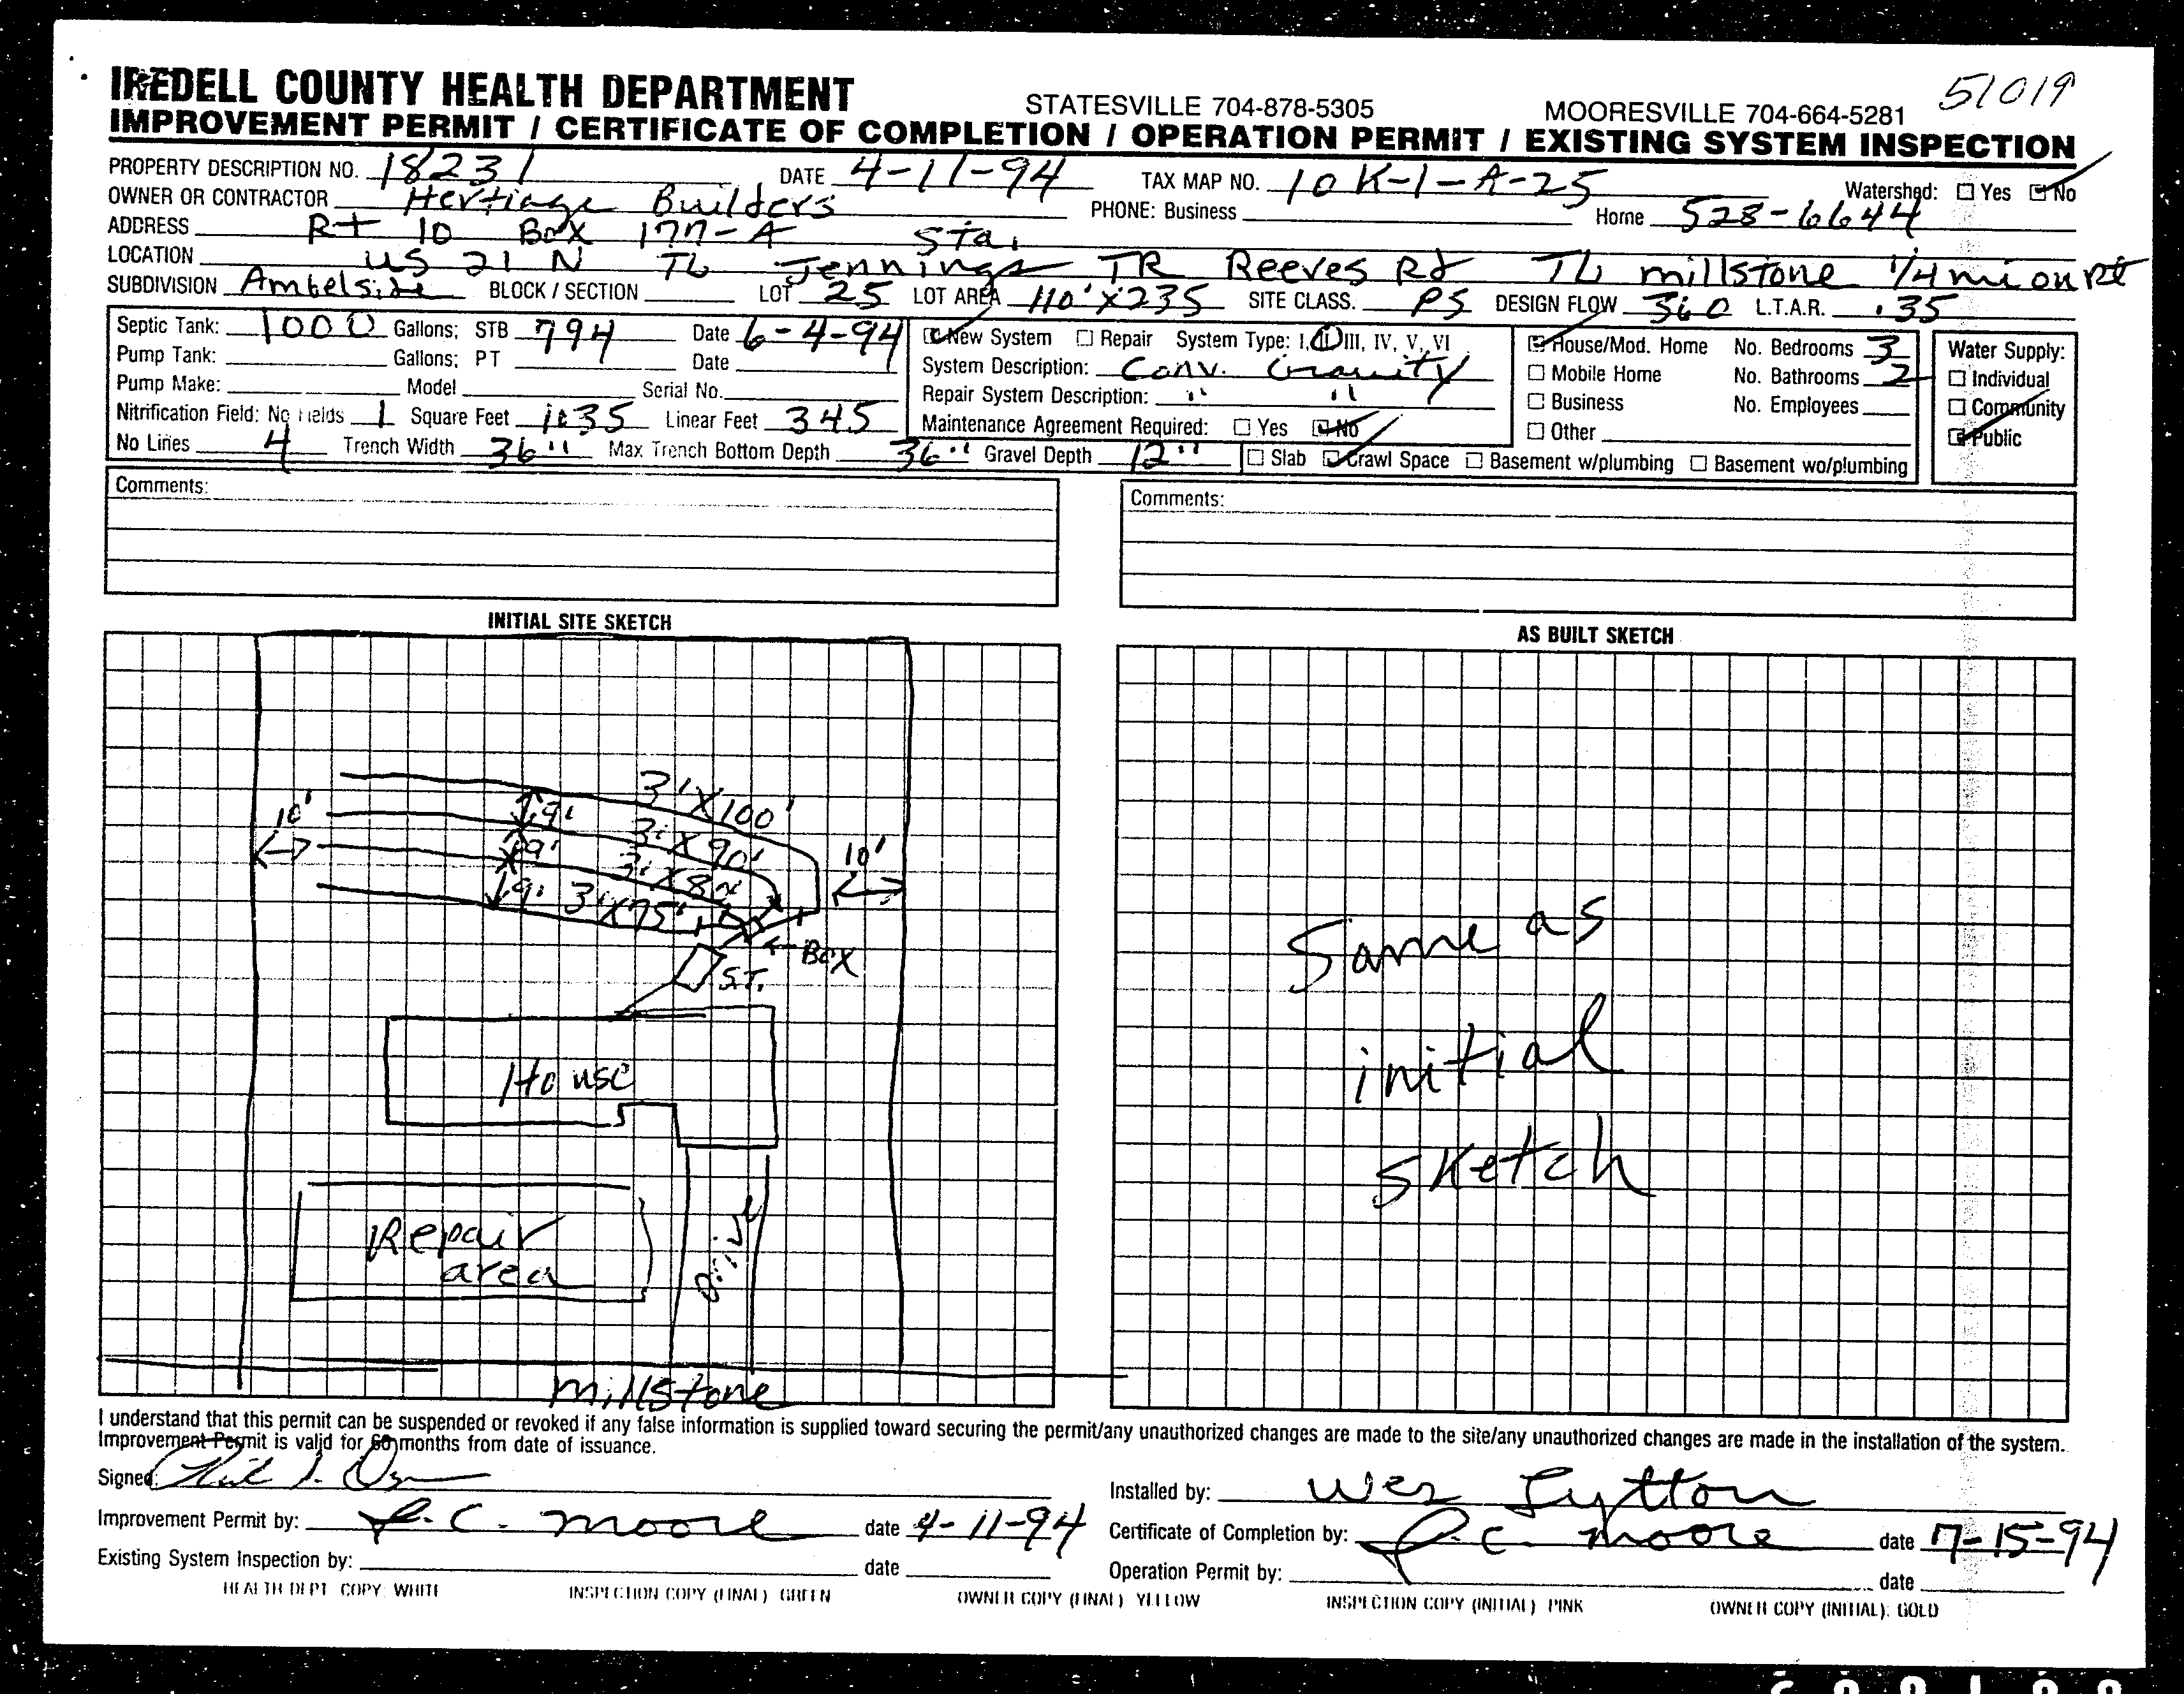 51019
IREDELL COUNTY HEALTH DEPARTMENT STATESVILLE 704-878-5305 MOORESVILLE 704-664-5281
IMPROVEMENT PERMIT / CERTIFICATE OF COMPLETION / OPERATION PERMIT / EXISTING SYSTEM INSPECTION
PROPERTY DESCRIPTION NO. 18231 DATE 4-11-94 TAX MAP NO. 10K-1-A-25 Watershed: Yes No
OWNER OR CONTRACTOR Hertiage Builders PHONE: Business Home 528-6644
ADDRESS Rt 10 Box 177-A Sta.
LOCATION US 21 N TL Jennings TR Reeves Rd TL millstone 1/4 mi on Rt
SUBDIVISION Ambelside BLOCK / SECTION LOT 25 LOT AREA 110' X 235 SITE CLASS. PS DESIGN FLOW 360 L.T.A.R. .35
Septic Tank: 1000 Gallons; STB 794 Date 6-4-94
Pump Tank: Gallons; PT Date
Pump Make: Model Serial No.
Nitrification Field: No Fields 1 Square Feet 1035 Linear Feet 345
No Lines 4 Trench Width 36" Max Trench Bottom Depth 36" Gravel Depth 12"
New System Repair System Type: I, II, III, IV, V, VI
System Description: Conv. Gravity
Repair System Description: " "
Maintenance Agreement Required: Yes No
House/Mod. Home No. Bedrooms 3
Mobile Home No. Bathrooms 2
Business No. Employees
Other
Slab Crawl Space Basement w/plumbing Basement wo/plumbing
Water Supply:
Individual
Community
Public
Comments:
Comments:
INITIAL SITE SKETCH
3'X100'
10'
9'
3'X90'
9'
3'X80'
10'
9'
3'X75'
Box
S.T.
House
Repair
area
Drive
Millstone
AS BUILT SKETCH
Same as
initial
sketch
I understand that this permit can be suspended or revoked if any false information is supplied toward securing the permit/any unauthorized changes are made to the site/any unauthorized changes are made in the installation of the system.
Improvement Permit is valid for 60 months from date of issuance.
Signed:
Installed by: Wes Lytton
Improvement Permit by: R.C. Moore date 4-11-94
Certificate of Completion by: R.C. Moore date 7-15-94
Existing System Inspection by: date
Operation Permit by: date
HEALTH DEPT. COPY: WHITE INSPECTION COPY (FINAL) GREEN OWNER COPY (FINAL) YELLOW INSPECTION COPY (INITIAL) PINK OWNER COPY (INITIAL): GOLD